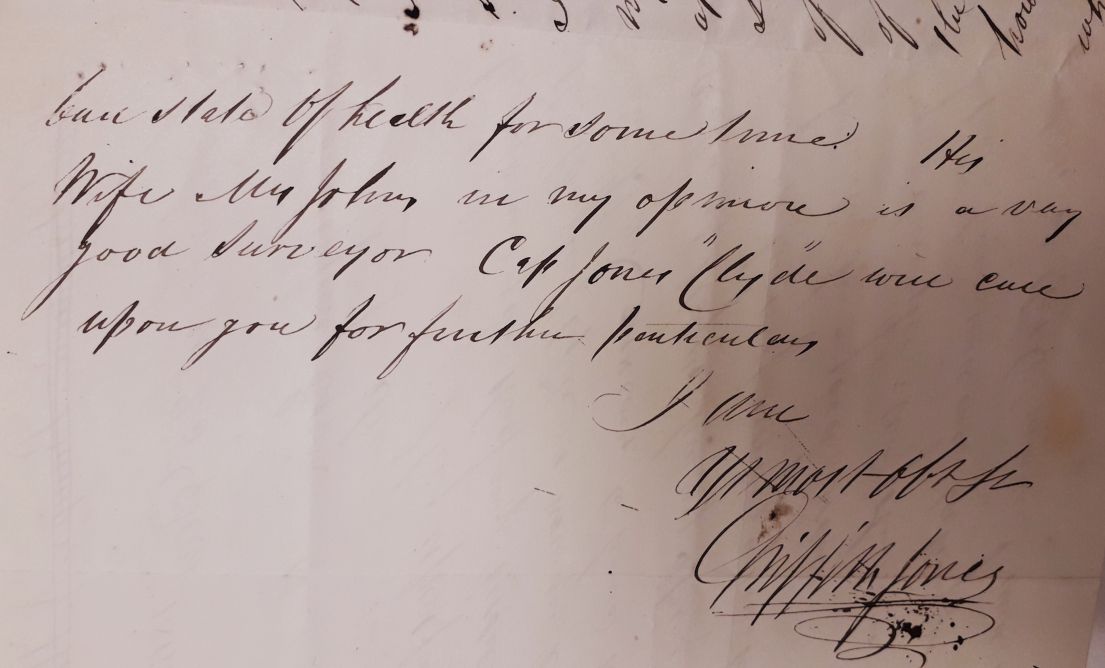 state of health for some time. His
Wife Mrs Johns in my opinion is a very
good surveyor Cap Jones "Clyde" will call
upon you for further particulars
I am
Yr most Obt St
Griffith Jones